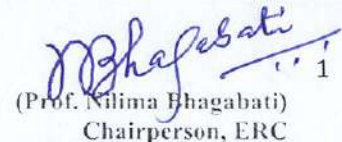 NBhagabati
1
(Prof. Nilima Bhagabati)
Chairperson, ERC